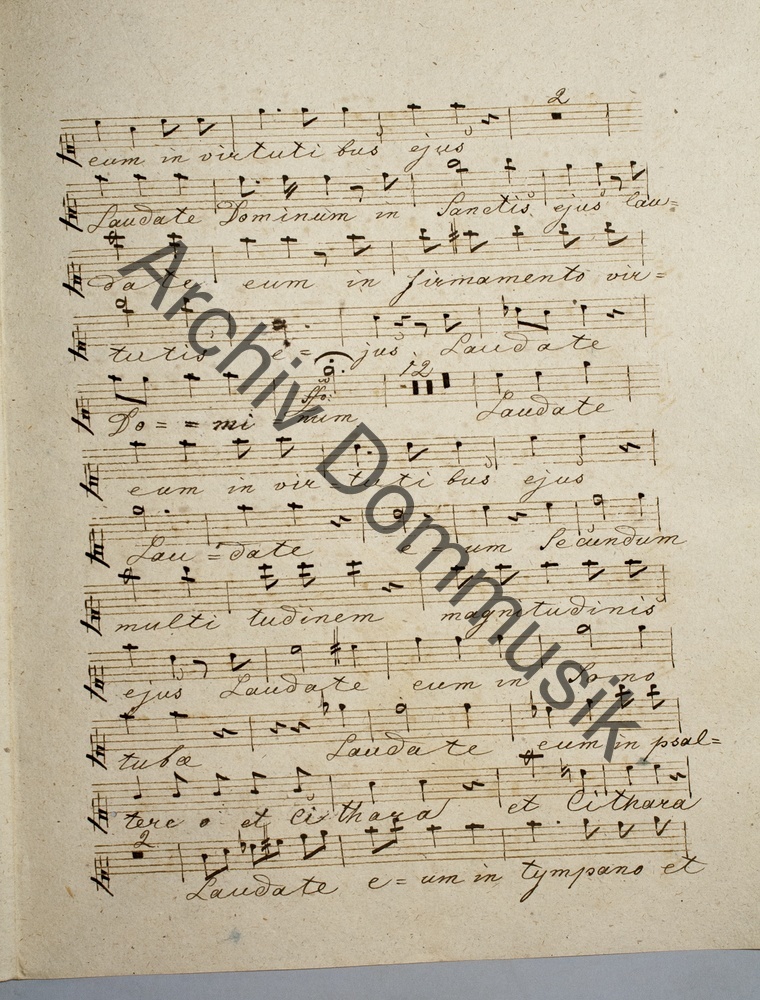 2
eum in virtuti bus ejus
Laudate Dominum in Sanctis ejus lau=
date eum in firmamento vir=
tutis e= jus Laudate
12
Do= = mi num Laudate
eum in virtuti bus ejus
Lau=date e um Secundum
multi tudinem magnitudinis
ejus Laudate eum in So no
tubæ Laudate eum in psal=
tere o et Ci thara et Cithara
2
Laudate e=um in tympano et
Archiv Dommusik